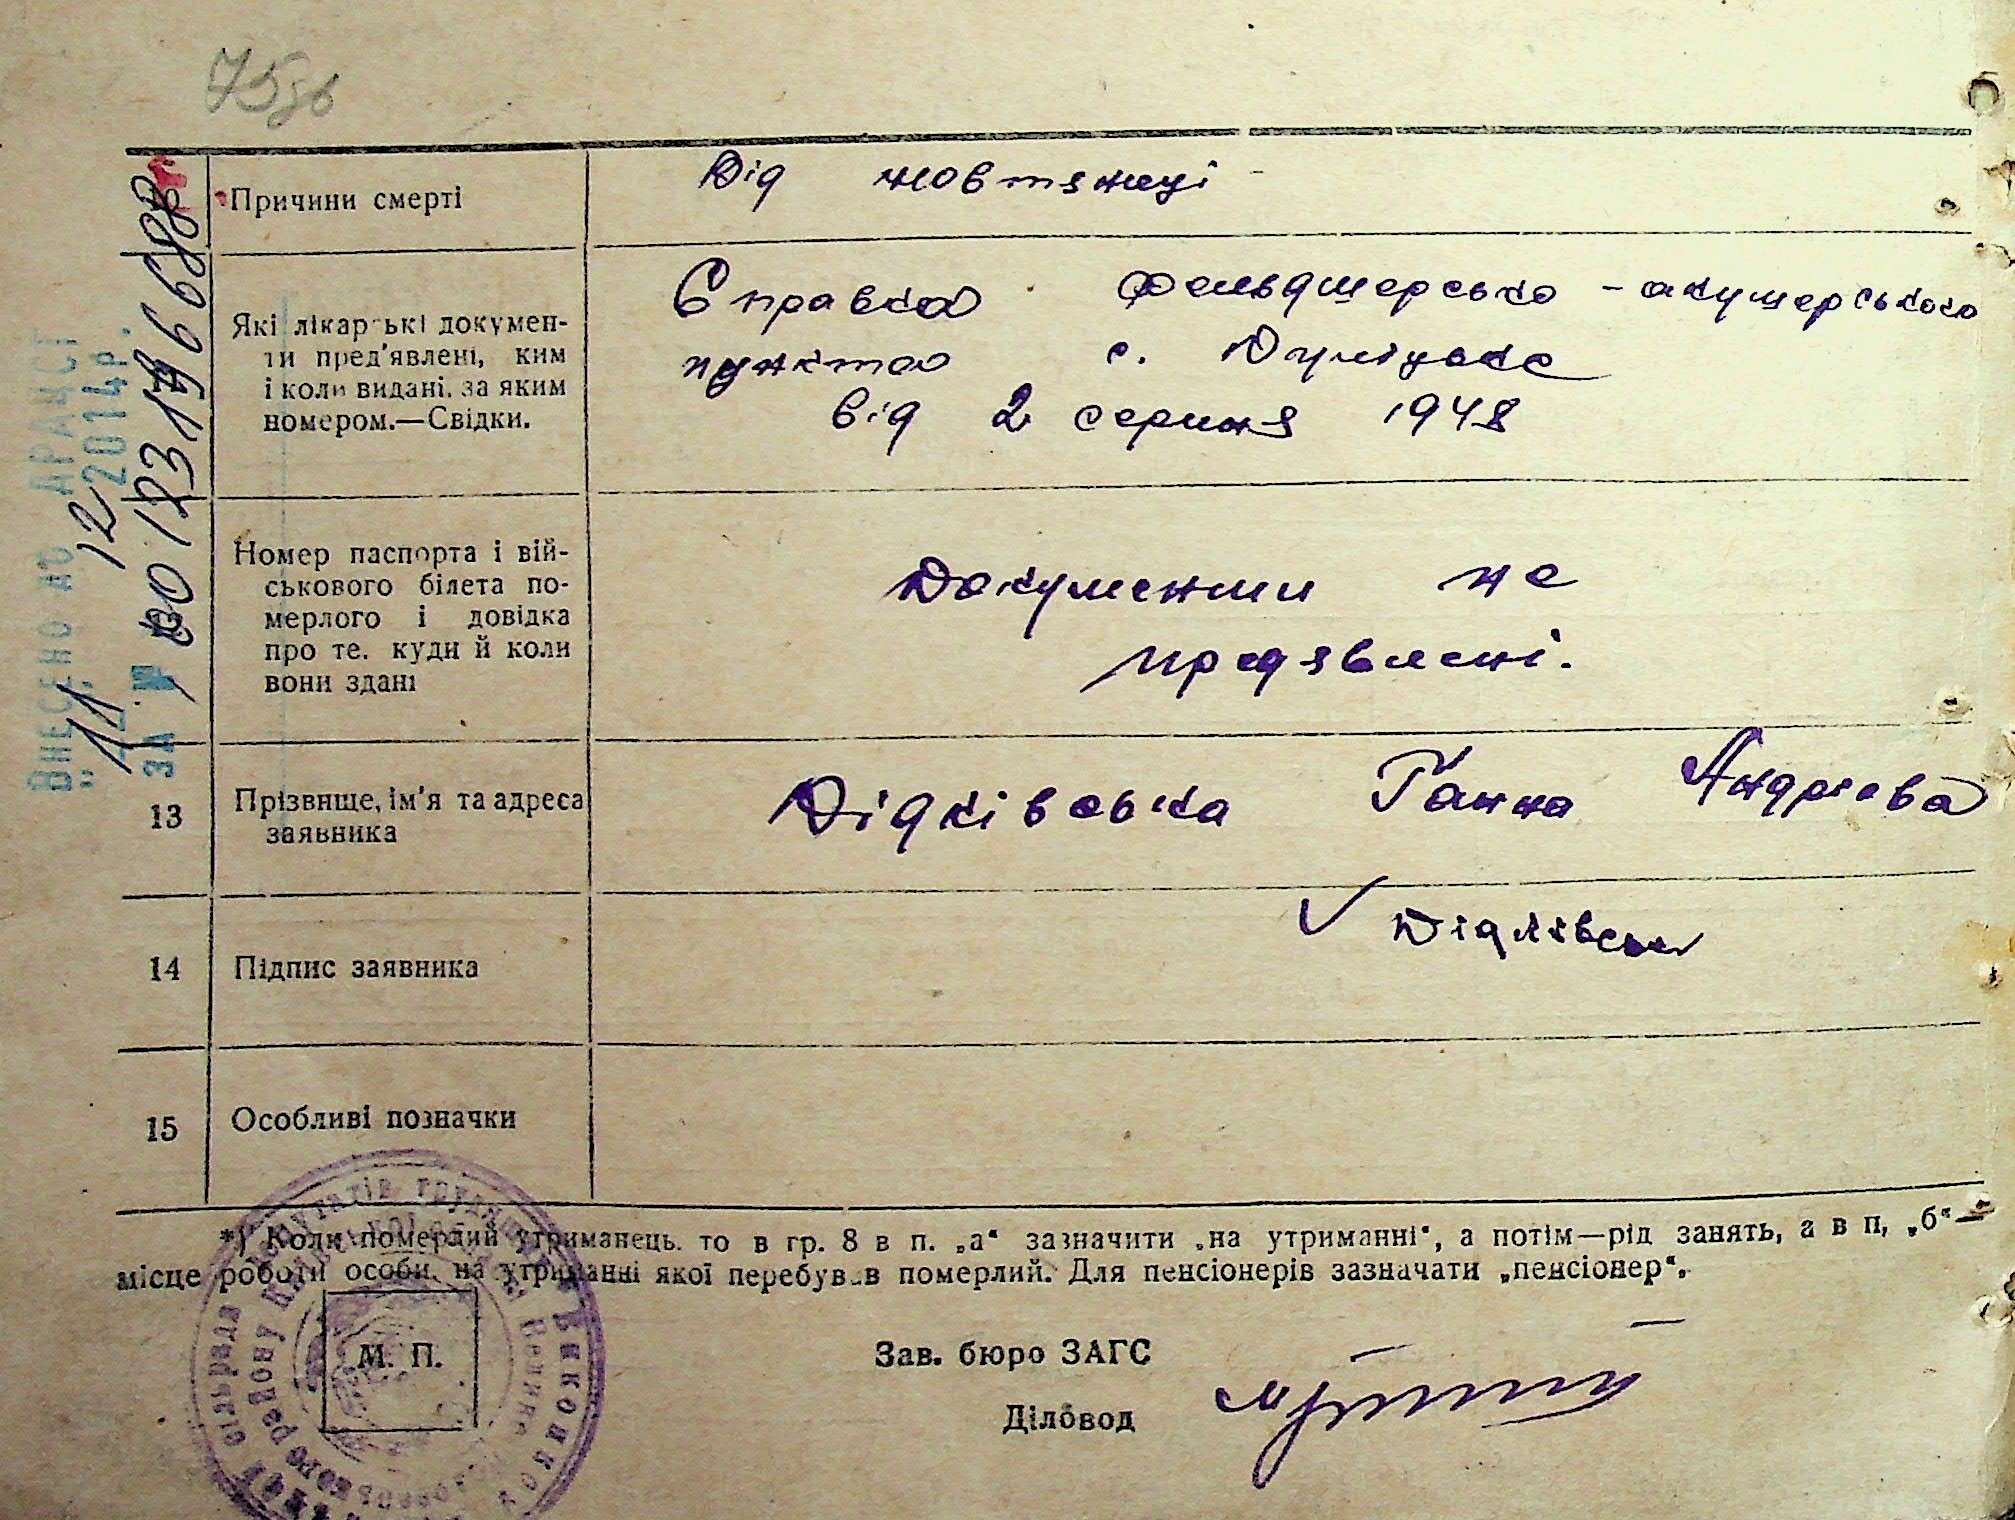 75
10 Причини смерті
Від жовтяниці
Які лікарські документи пред'явлені, ким
і коли видані, за яким
номером.—Свідки.
Справка фельдшерсько-акушерського
пункта с.
від 2 серпня 1948
Номер паспорта і військового білета померлого і довідка
про те. куди й коли
вони здані
Документи не
предявлені.
13 Прізвище, ім'я та адреса
заявника
Дідківська Ганна Андрієва
14 Підпис заявника
✓ Дідківська
15 Особливі позначки
*) Коли померлий утриманець. то в гр. 8 в п. „а“ зазначити „на утриманні“, а потім—рід занять, а в п, „б“—
місце роботи особи, на утриманні якої перебував померлий. Для пенсіонерів зазначати „пенсіонер“.
М. П.
Зав. бюро ЗАГС
Діловод
ВНЕСЕНО ДО ДРАЦС
„11“ 12 2014р.
ЗА №